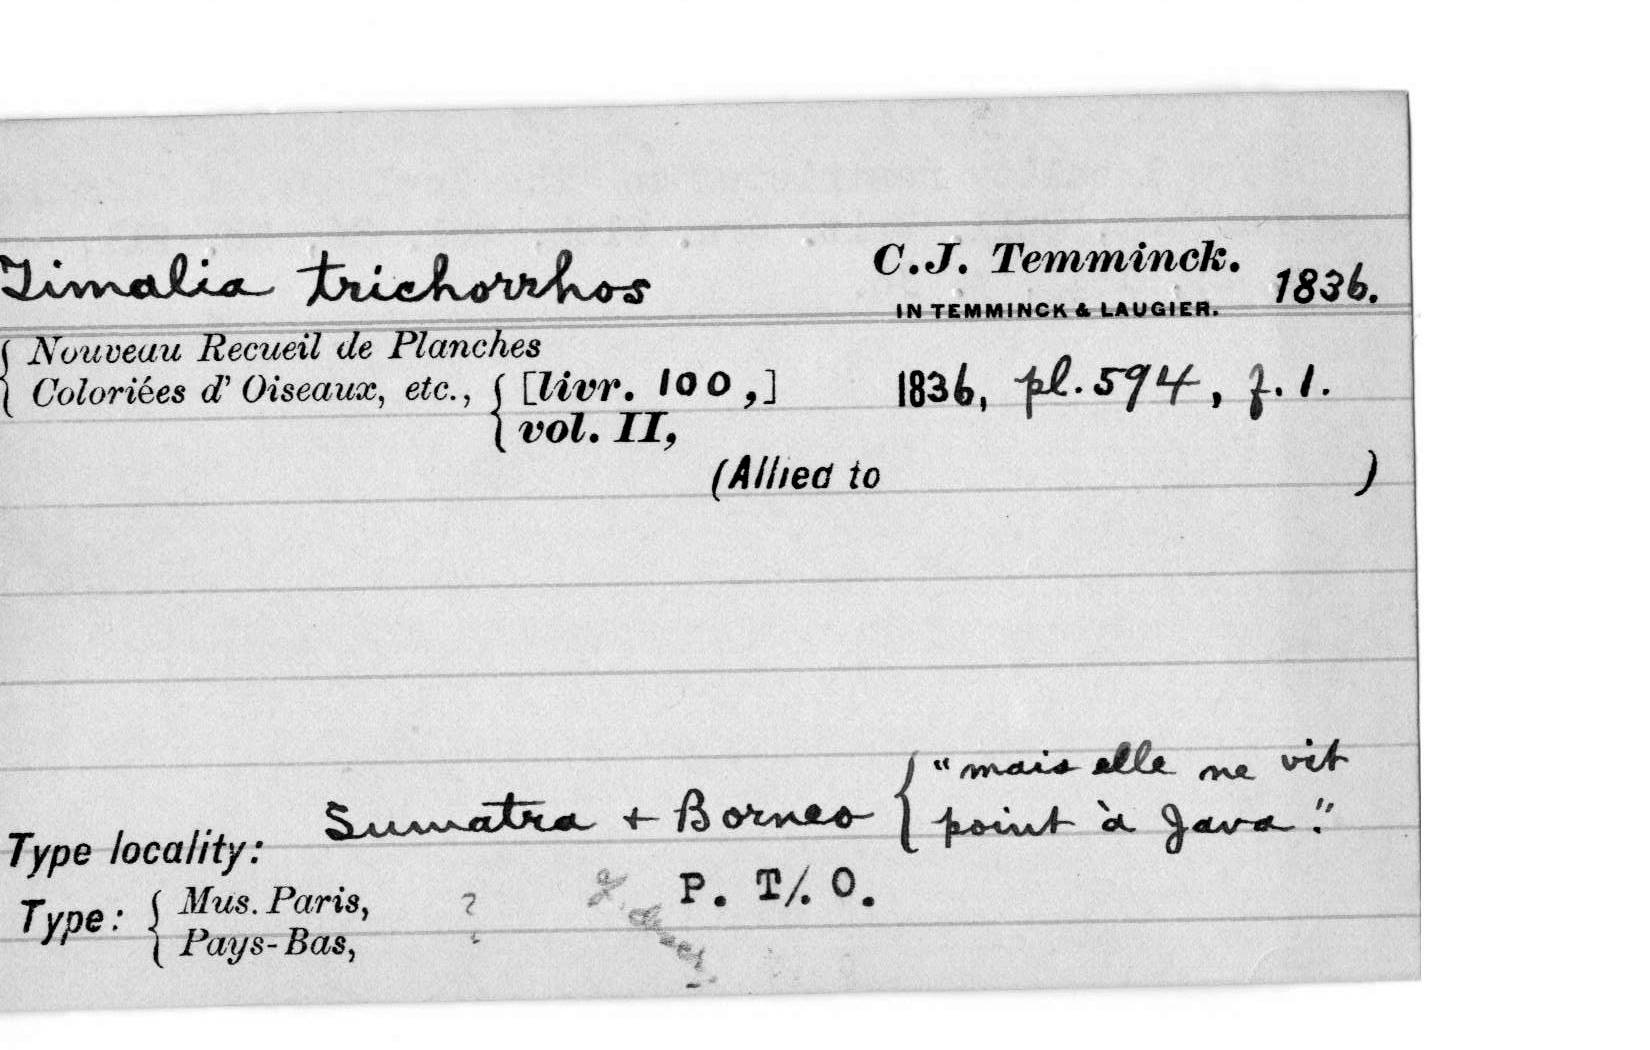 Timalia trichorrhos C.J. Temminck. 1836.
IN TEMMINCK & LAUGIER.
Nouveau Recueil de Planches
Coloriées d' Oiseaux, etc., [livr. 100,] 1836, pl. 594, f. 1.
vol. II,
(Allied to )
"mais elle ne vit
Type locality: Sumatra + Borneo point à Java."
Type: Mus. Paris, ? P. T/. O.
Pays-Bas,